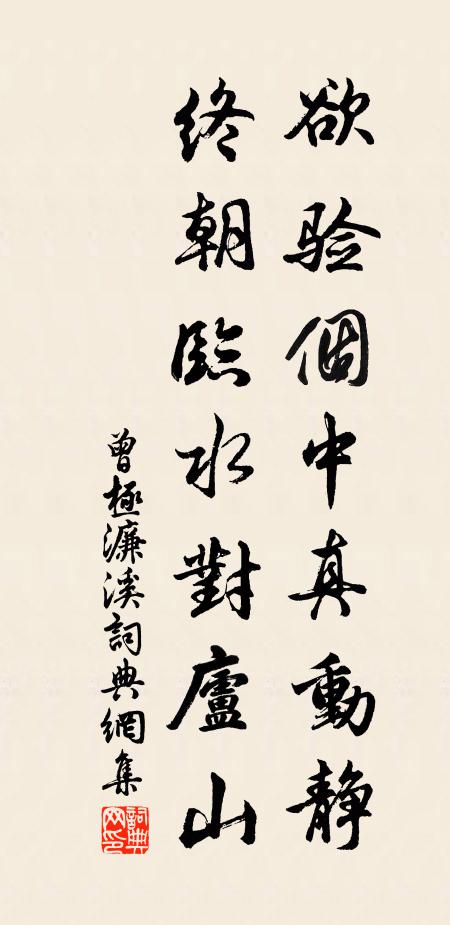 欲验個中真動静
終朝臨水對廬山
曾極濂溪詞典網集
詞典網印